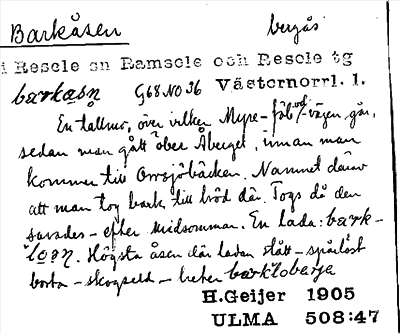 Barkåsen bergås
i Resele sn Ramsele och Resele tg
barkåsn G68NO36 Västernorrl. l.
En tallmo, över vilken Myre-fäb.-vägen går,
sedan man gått över Åberget, innan man
kommer till Orrsjöbäcken. Namnet därav
att man tog bark till bröd där. Togs då den
savades - efter midsommar. En lada: bark-
Högsta åsen där ladan stått - spårlöst
borta - skogseld - heter
H.Geijer 1905
ULMA 508:47